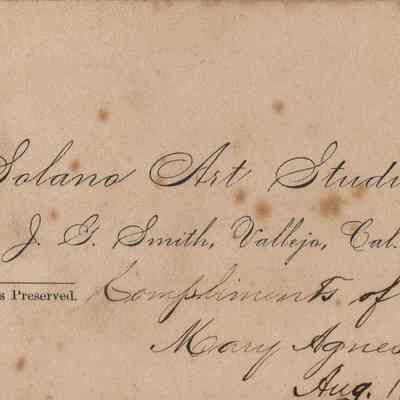 Solano Art Studi
J. G. Smith, Vallejo, Cal.
s Preserved.
Compliments of
Mary Agnes
Aug. 1